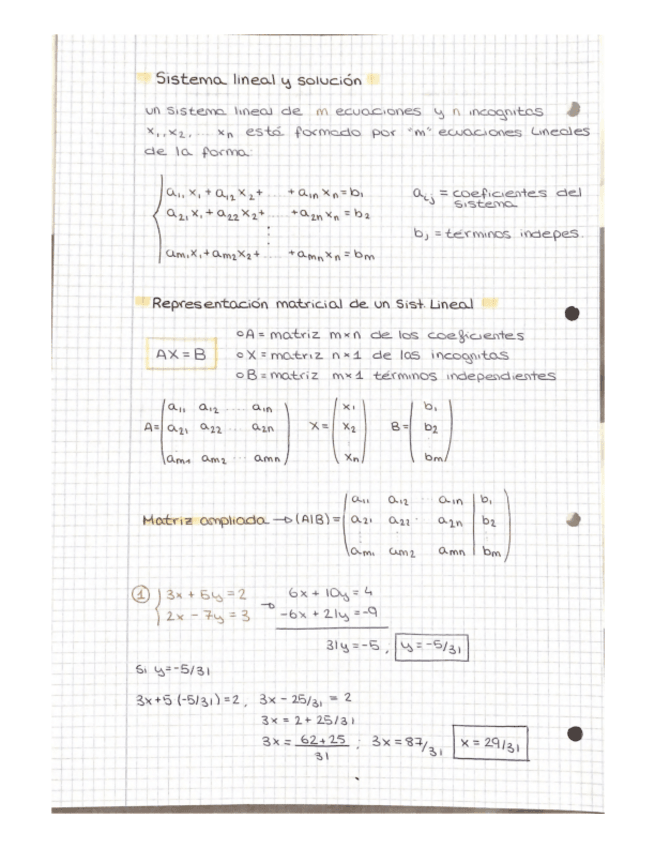 Sistema lineal y solución
un sistema lineal de m ecuaciones y n incognitas
x₁, x₂, ... xn está formado por "m" ecuaciones Lineales
de la forma:
a₁₁x₁ + a₁₂x₂ + .... + a₁n xn = b₁
a₂₁x₁ + a₂₂x₂ + .... + a₂n xn = b₂
⋮
am₁x₁ + am₂x₂ + .... + amn xn = bm
aij = coeficientes del
sistema
bj = términos indepes.
Representación matricial de un Sist. Lineal
AX = B
○ A = matriz m×n de los coeficientes
○ X = matriz n×1 de las incognitas
○ B = matriz m×1 términos independientes
A = ( a₁₁ a₁₂ .... a₁n X = ( x₁ B = ( b₁
a₂₁ a₂₂ ... a₂n x₂ b₂
am₁ am₂ amn ) xn ) bm )
Matriz ampliada → (A|B) = ( a₁₁ a₁₂ ... a₁n | b₁
a₂₁ a₂₂ ... a₂n | b₂
⋮ ⋮ ⋮ ⋮
am₁ am₂ amn | bm )
① { 3x + 5y = 2 → 6x + 10y = 4
2x - 7y = 3 -6x + 21y = -9
31y = -5 , y = -5/31
Si y = -5/31
3x + 5 (-5/31) = 2 , 3x - 25/31 = 2
3x = 2 + 25/31
3x = 62 + 25 / 31 ; 3x = 87/31 x = 29/31